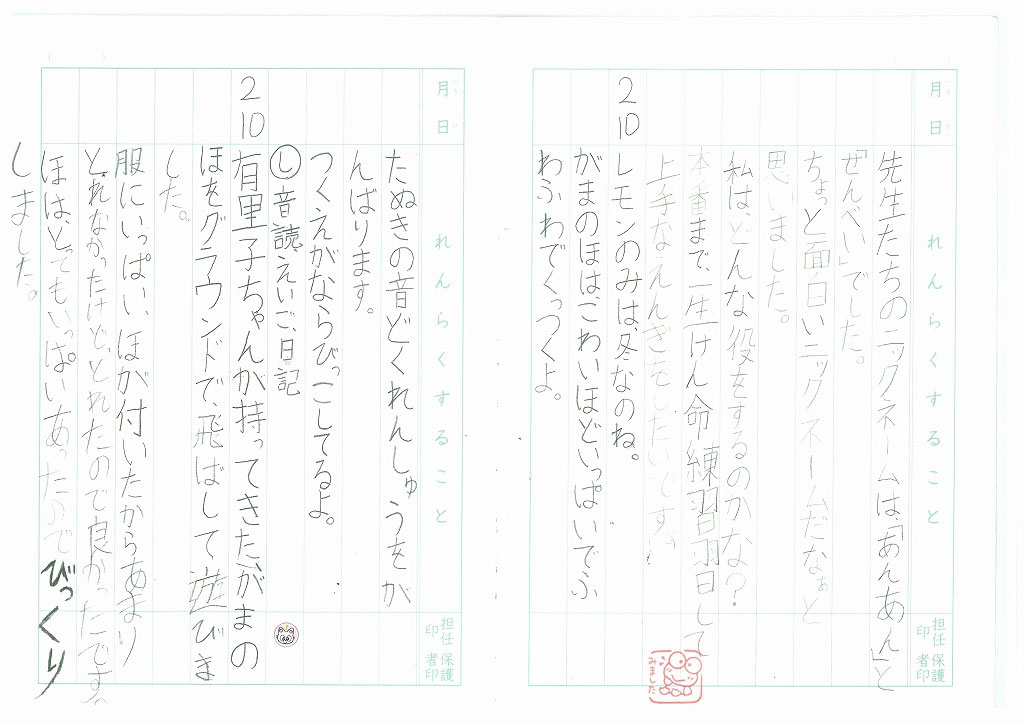 月 日
れんらくすること
担任印 保護者印
先生たちのニックネームは、「あんあん」と
「ぜんべい」でした。
ちょっと面白いニックネームだなぁと
思いました。
私は、どんな役をするのかな？
本番まで、一生けん命練習して
上手なえんぎをしたいです。
2/10 レモンのみは、冬なのね。
がまのほはこわいほどいっぱいでふ
わふわでくっつくよ。
みました
月 日
れんらくすること
担任印 保護者印
たぬきの音どくれんしゅうをが
んばります。
つくえがならびっこしてるよ。
し 音読、えいご、日記
2/10 有里子ちゃんが持ってきた、がまの
ほをグラウンドで、飛ばして遊びま
した。
服にいっぱい、ほが付いたからあまり
とれなかったけど、とれたので良かったです。
ほは、とってもいっぱいあったので びっくり
しました。